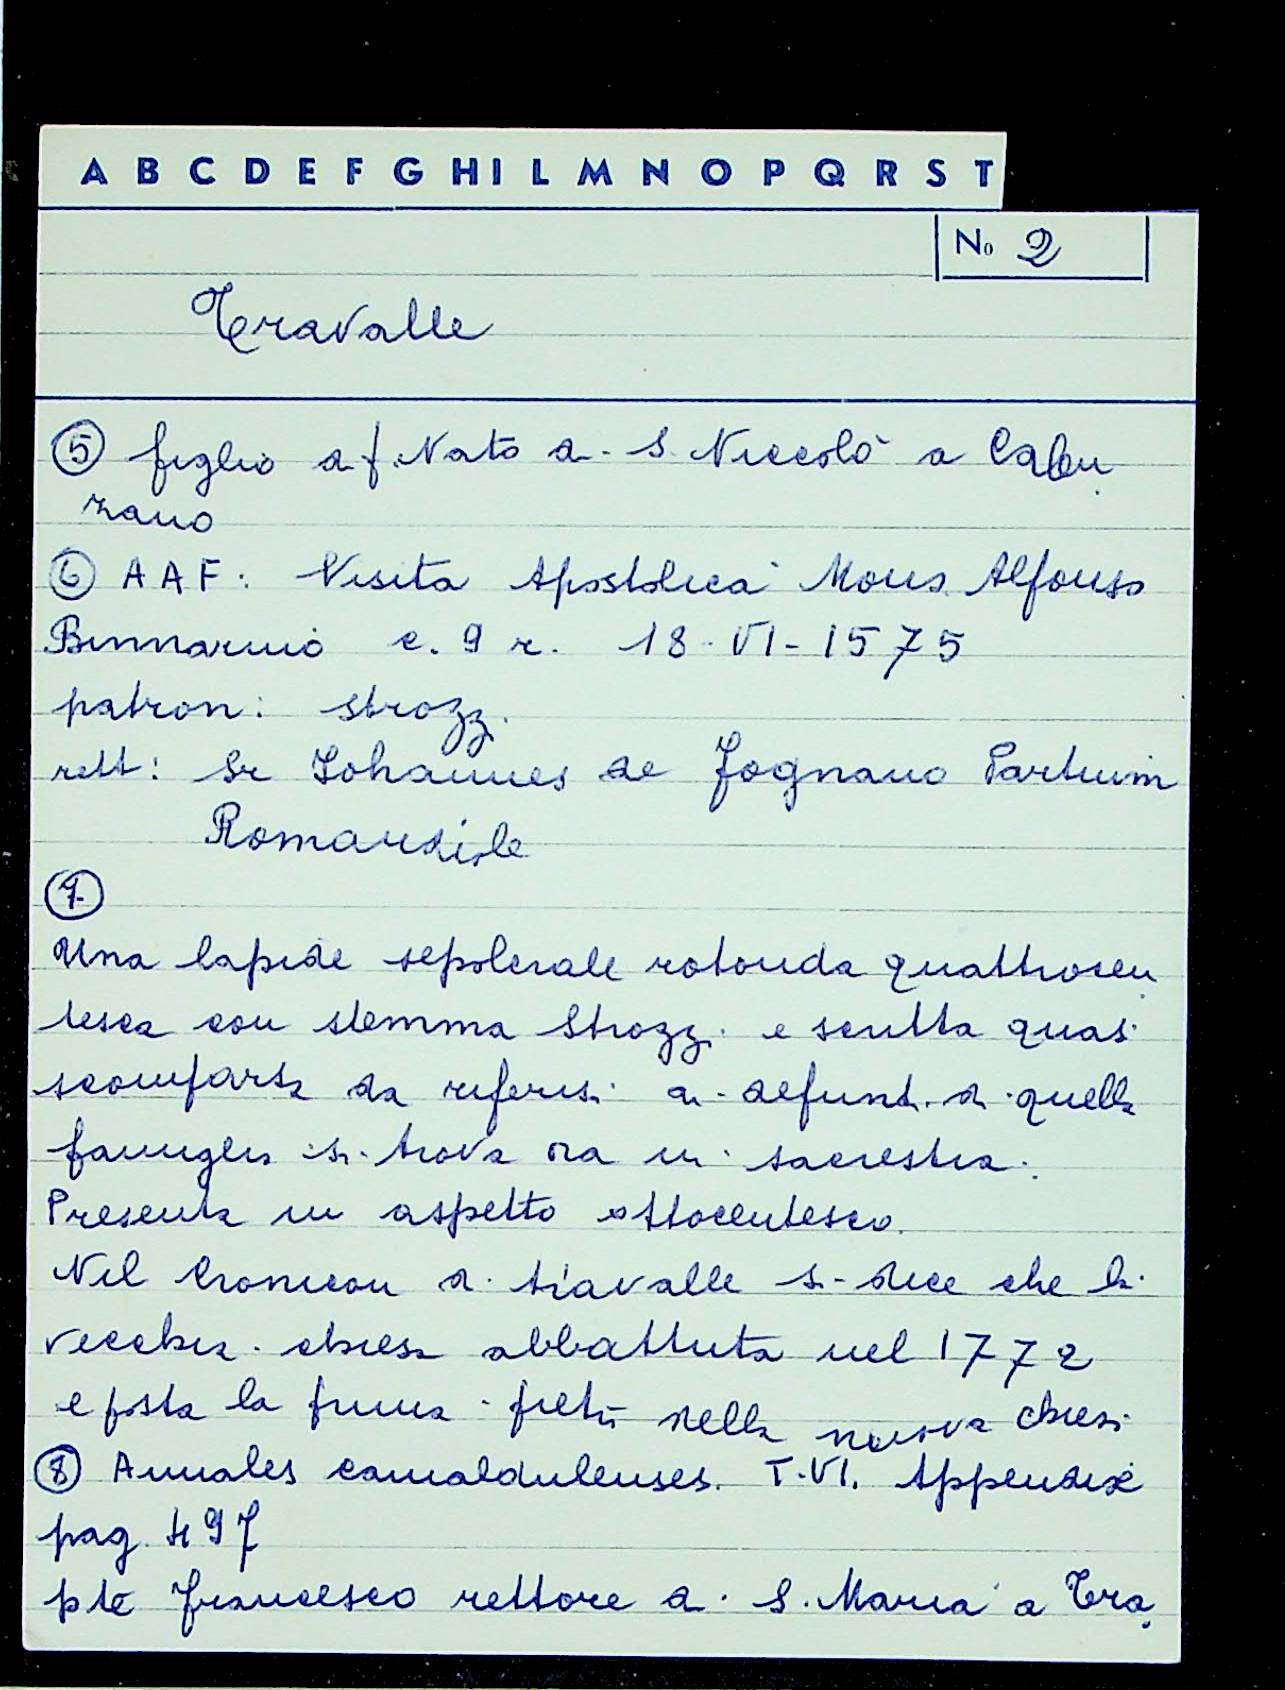 A B C D E F G H I L M N O P Q R S T
No 2
Travalle
5 figlio di f. Nato di S. Niccolò a Calen
zano
6 AAF: Visita Apostolica Mons. Alfonso
Binnarino c. 9 r. 18-VI-1575
patron: Strozzi
rett: Sr Johannes de Fognano Partium
Romandiole
7
Una lapide sepolcrale rotonda quattrocen
tesca con stemma Strozzi e scritta quasi
scomparsa da riferirsi ai defunti di quella
famiglia si trova ora in sacrestia.
Presenta un aspetto ottocentesco.
Nel Cronicon di Travalle si dice che la
vecchia chiesa abbattuta nel 1772
e posta la prima pietra nella nuova chiesa
8 Annales camaldulenses. T.VI. Appendix
pag. 497
pte Francesco rettore di S. Maria a Tra